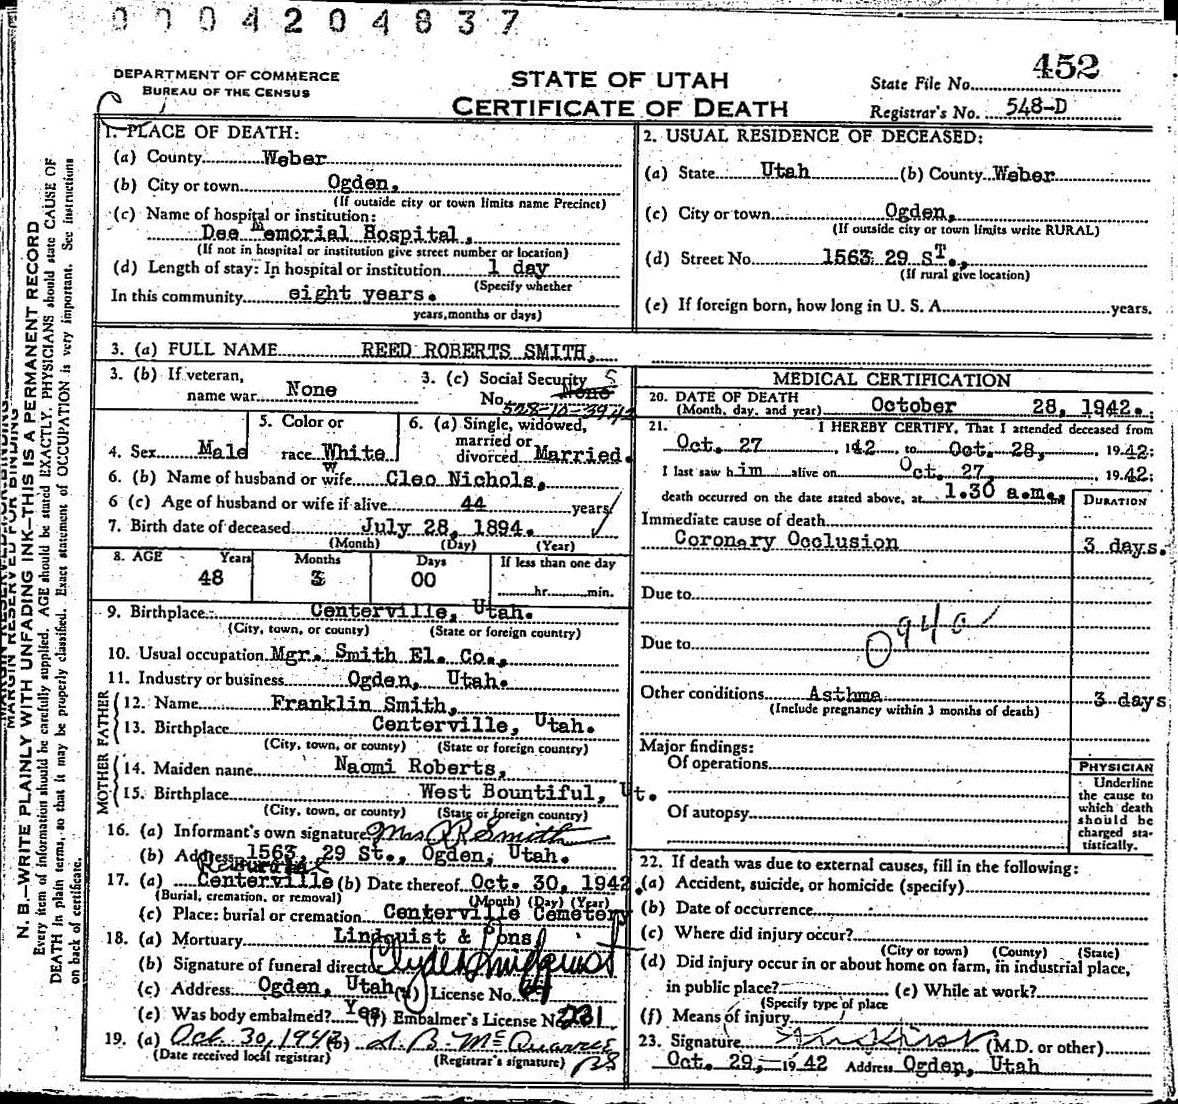 0004204837
DEPARTMENT OF COMMERCE
BUREAU OF THE CENSUS
STATE OF UTAH
CERTIFICATE OF DEATH
State File No. 452
Registrar's No. 548-D
1. PLACE OF DEATH:
(a) County Weber
(b) City or town Ogden,
(If outside city or town limits name Precinct)
(c) Name of hospital or institution:
Dee Memorial Hospital,
(If not in hospital or institution give street number or location)
(d) Length of stay: In hospital or institution 1 day
(Specify whether
In this community eight years.
years, months or days)
2. USUAL RESIDENCE OF DECEASED:
(a) State Utah (b) County Weber
(c) City or town Ogden,
(If outside city or town limits write RURAL)
(d) Street No. 1563 29 ST.,
(If rural give location)
(e) If foreign born, how long in U. S. A. years.
3. (a) FULL NAME REED ROBERTS SMITH,
3. (b) If veteran,
name war None
3. (c) Social Security
No. None
4. Sex Male
5. Color or
race White
6. (a) Single, widowed,
married or
divorced Married.
6. (b) Name of husband or wife Cleo Nichols,
6 (c) Age of husband or wife if alive 44 years
7. Birth date of deceased July 28, 1894.
(Month) (Day) (Year)
8. AGE Years Months Days If less than one day
48 3 00 hr. min.
9. Birthplace: Centerville, Utah.
(City, town, or county) (State or foreign country)
10. Usual occupation Mgr. Smith El. Co.,
11. Industry or business Ogden, Utah.
FATHER
12. Name Franklin Smith,
13. Birthplace Centerville, Utah.
(City, town, or county) (State or foreign country)
MOTHER
14. Maiden name Naomi Roberts,
15. Birthplace West Bountiful, Ut.
(City, town, or county) (State or foreign country)
16. (a) Informant's own signature Mrs R R Smith
(b) Address 1563, 29 St., Ogden, Utah.
17. (a) Burial Centerville (b) Date thereof Oct. 30, 1942.
(Burial, cremation, or removal) (Month) (Day) (Year)
(c) Place: burial or cremation Centerville Cemetery
18. (a) Mortuary Lindquist & Sons,
(b) Signature of funeral director Clyde Lindquist
(c) Address Ogden, Utah (d) License No.
(e) Was body embalmed? Yes (f) Embalmer's License No. 231
19. (a) Oct. 30, 1942 (b)
(Date received local registrar) (Registrar's signature)
MEDICAL CERTIFICATION
20. DATE OF DEATH
(Month, day, and year) October 28, 1942.
21. I HEREBY CERTIFY, That I attended deceased from
Oct. 27 1942, to Oct. 28, 1942:
I last saw him alive on Oct. 27, 1942:
death occurred on the date stated above, at 1.30 a.m.
DURATION
Immediate cause of death
Coronary Occlusion 3 days.
Due to
094a
Due to
Other conditions Asthma 3 days
(Include pregnancy within 3 months of death)
Major findings:
Of operations
Of autopsy
PHYSICIAN
Underline
the cause to
which death
should be
charged sta-
tistically.
22. If death was due to external causes, fill in the following:
(a) Accident, suicide, or homicide (specify)
(b) Date of occurrence
(c) Where did injury occur?
(City or town) (County) (State)
(d) Did injury occur in or about home on farm, in industrial place,
in public place? (e) While at work?
(Specify type of place
(f) Means of injury
23. Signature (M.D. or other)
Oct. 29, 1942 Address Ogden, Utah
MARGIN RESERVED FOR BINDING
N. B.—WRITE PLAINLY WITH UNFADING INK—THIS IS A PERMANENT RECORD
Every item of information should be carefully supplied. AGE should be stated EXACTLY. PHYSICIANS should state CAUSE OF
DEATH in plain terms, so that it may be properly classified. Exact statement of OCCUPATION is very important. See instructions
on back of certificate.